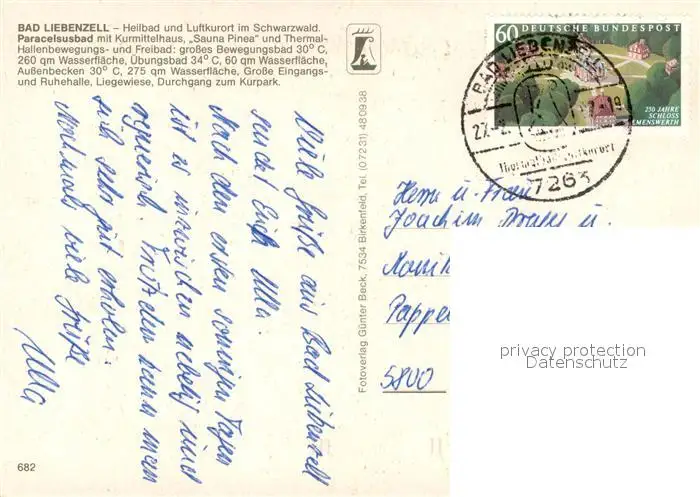 BAD LIEBENZELL – Heilbad und Luftkurort im Schwarzwald.
Paracelsusbad mit Kurmittelhaus, „Sauna Pinea" und Thermal-
Hallenbewegungs- und Freibad: großes Bewegungsbad 30° C,
260 qm Wasserfläche, Übungsbad 34° C, 60 qm Wasserfläche,
Außenbecken 30° C, 275 qm Wasserfläche, Große Eingangs-
und Ruhehalle, Liegewiese, Durchgang zum Kurpark.
Viele Grüße aus Bad Liebenzell
sendet Euch Ulla.
Nach den ersten sonnigen Tagen
ist es inzwischen nebelig und
regnerisch. Trotzdem kann man
sich sehr gut erholen.
Nochmals viele Grüße
Ulla
682
Fotoverlag Günter Beck, 7534 Birkenfeld, Tel. (07231) 480938
60 DEUTSCHE BUNDESPOST
250 JAHRE
SCHLOSS
CLEMENSWERTH
BAD LIEBENZELL
27.
7263
Herrn u. Frau
Joachim u.
Pappe
5800
privacy protection
Datenschutz